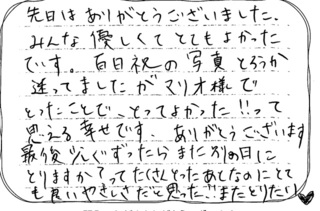 先日はありがとうございました.
みんな優しくてとてもよかった
です。百日祝の写真とろうか
迷ってましたがマリオ様で
とったことで、とってよかった!!って
思える幸せです。ありがとうございます
最後ぐずったらまた別の日に
とりますか?ってたくさんとったあとなのにとて
も良いやさしさだと思った!!またとりたい